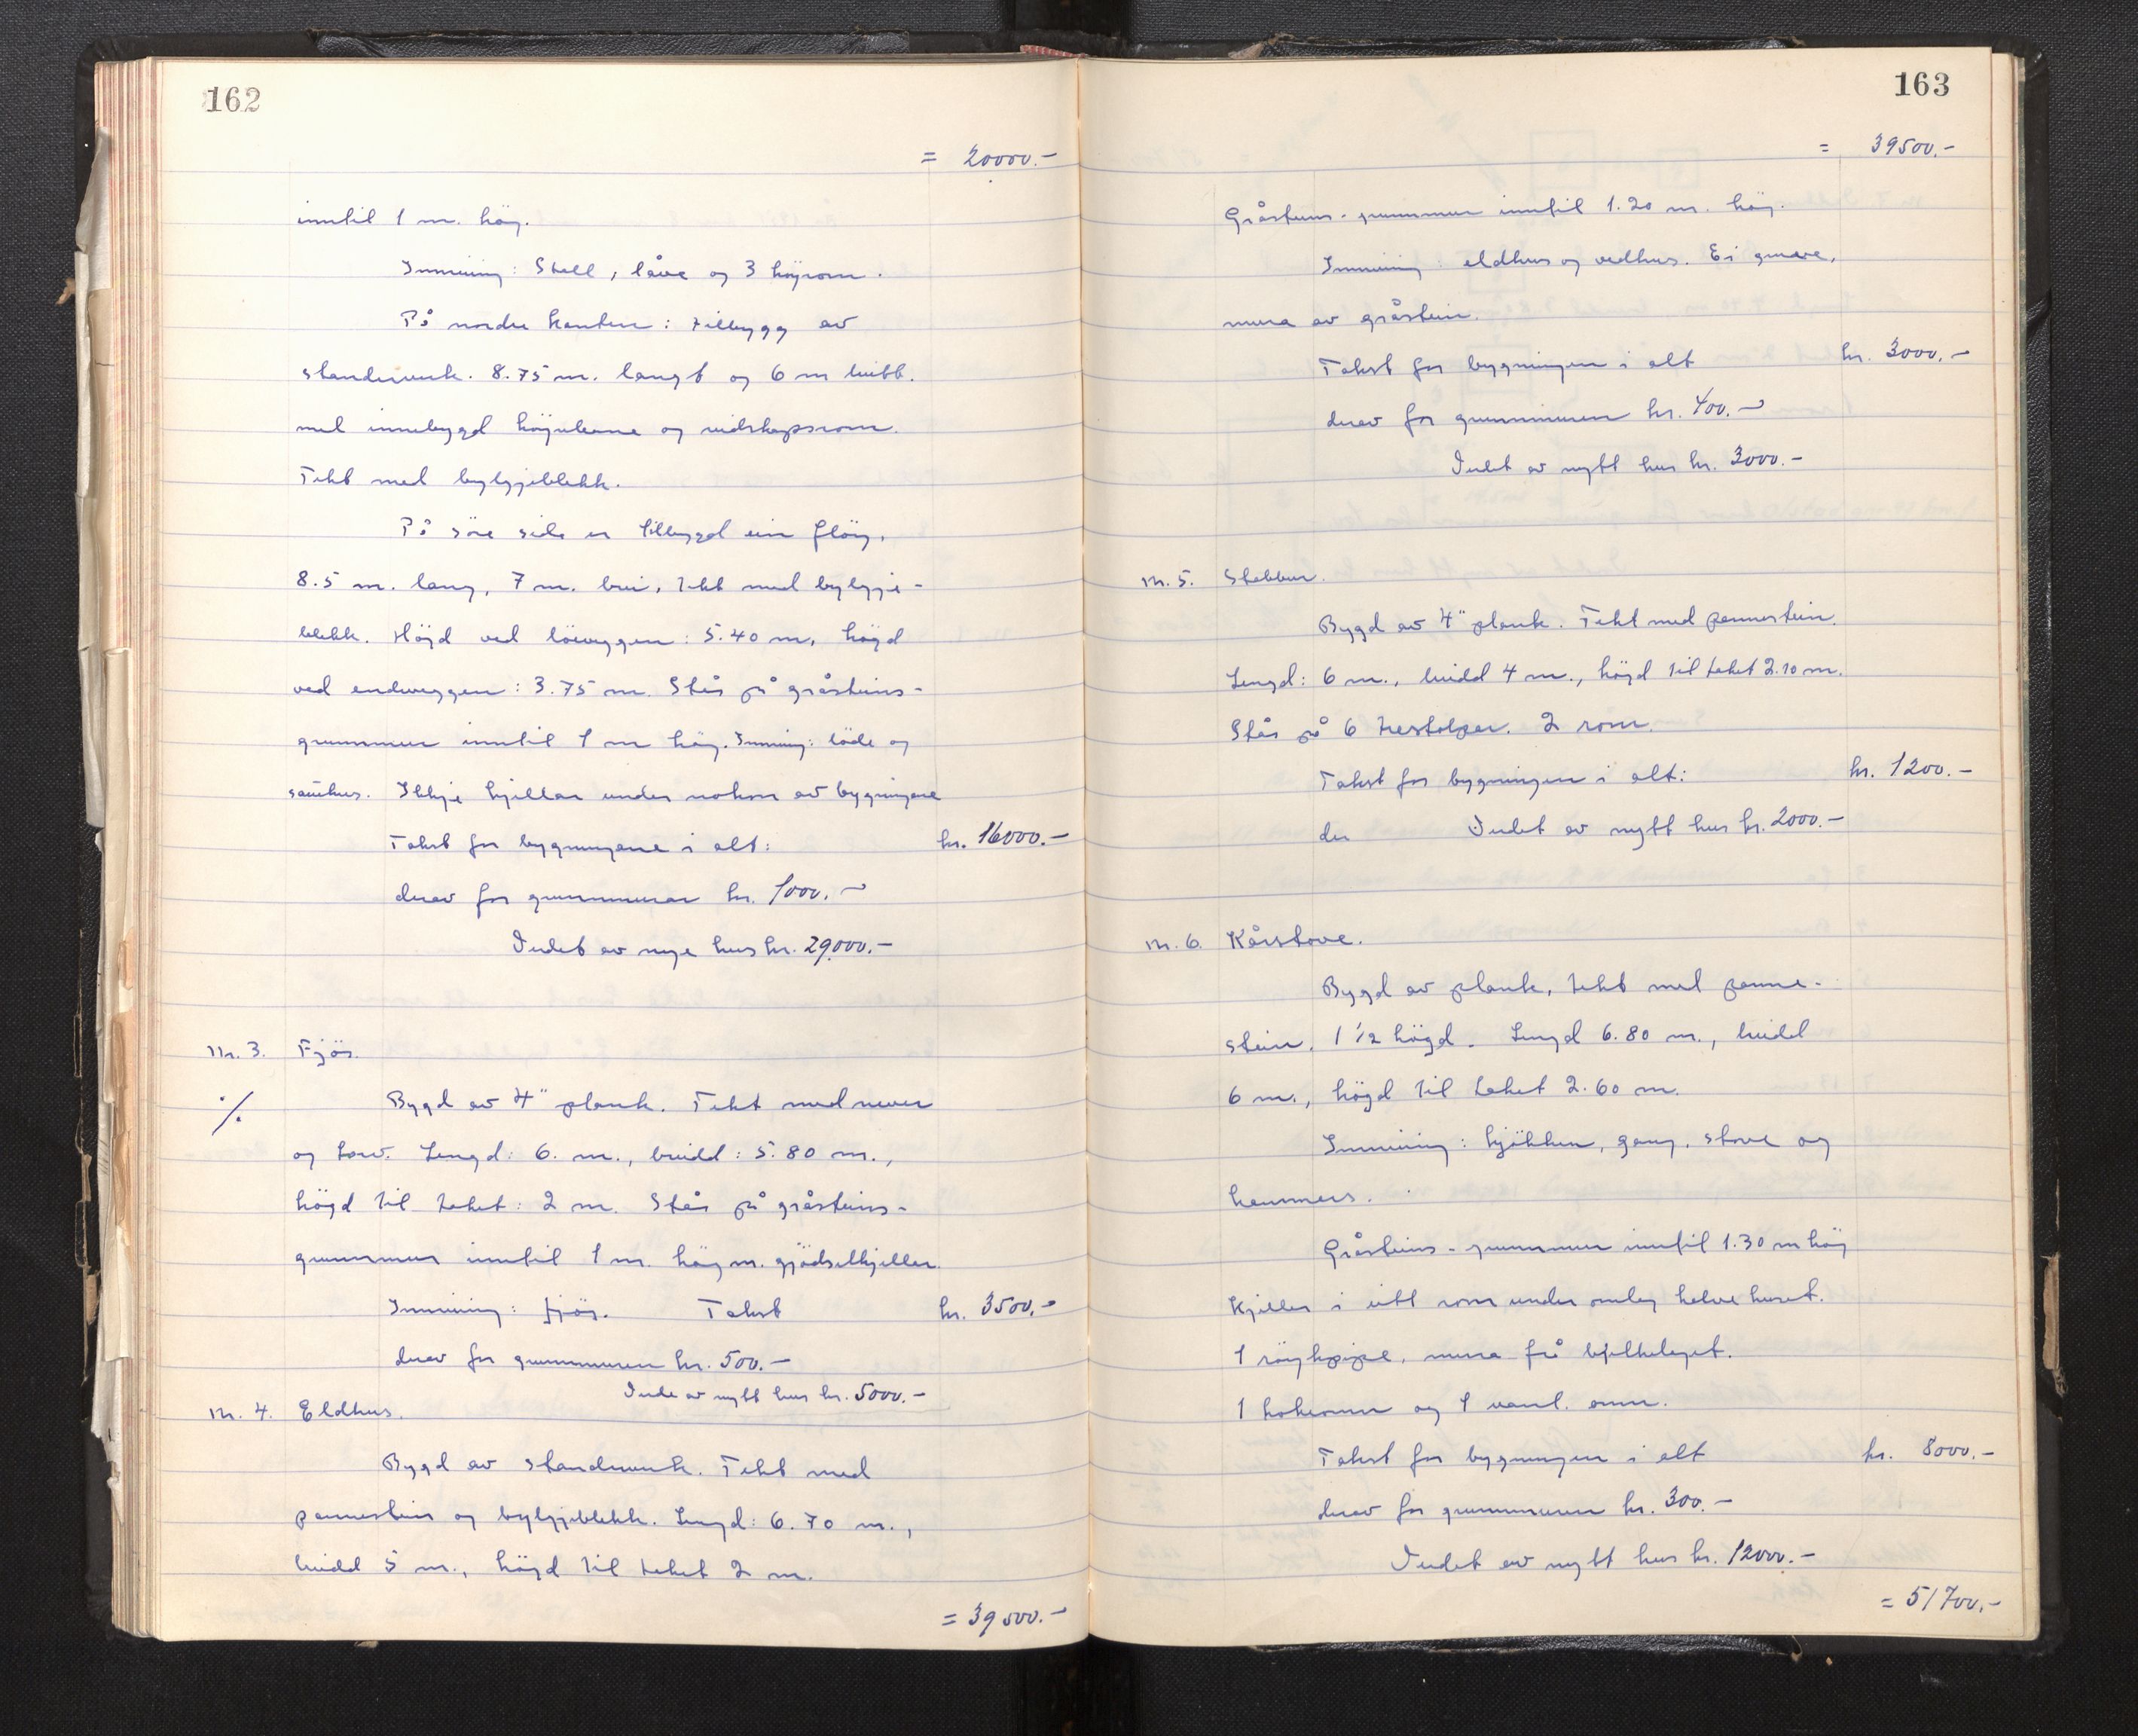 162
= 20000.-
inntil 1 m. høg.
Innreiing: Stall, låve og 3 höyrom.
På nordre kanten: tilbygg av
standerverk. 8.75 m. langt og 6 m breitt.
med innebygd höykøyrebru og reidskapsrom.
Tekt med bylgjeblekk.
På söre side er tilbygd ein flöy,
8.5 m. lang, 7 m. brei, tekt med bylgje-
blekk. Högd ved löeveggen: 5.40 m, högd
ved endeveggen: 3.75 m. Står på gråsteins-
grunnmur inntil 1 m hög. Innreiing: löde og
sauehus. Ikkje kjellar under nokon av bygningane
Takst for bygningane i alt: kr. 16000.-
derav for grunnmurar kr. 1000.-
Verdet av nye hus kr. 29000.-
Nr. 3. Fjös.
·/. Bygd av 4" plank. Tekt med never
og torv. Lengd: 6. m., breidd: 5.80 m.,
högd til taket: 2 m. Står på gråsteins-
grunnmur inntil 1 m. hög m. gjödselkjellar.
Innreiing: fjös. Takst kr. 3500.-
derav for grunnmuren kr. 500.-
Verde av nytt hus kr. 5000.-
Nr. 4. Eldhus.
Bygd av standerverk. Tekt med
pannestein og bylgjeblekk. Lengd: 6.70 m.,
breidd 5 m., högd til taket 2 m.
= 39500.-
163
= 39500.-
Gråsteins-grunnmur inntil 1.20 m. hög.
Innreiing: eldhus og vedhus. Ei grue,
mura av gråstein.
Takst for bygningen i alt kr. 3000.-
derav for grunnmuren kr. 400.-
Verdet av nytt hus kr. 3000.-
Nr. 5. Stabbur.
Bygd av 4" plank. Tekt med pannestein.
Lengd: 6 m., breidd 4 m., högd til taket 2.10 m.
Står på 6 trestolper. 2 rom.
Takst for bygningen i alt: kr. 1200.-
der Verdet av nytt hus kr. 2000.-
Nr. 6. Kårstove.
Bygd av plank, tekt med panne-
stein. 1 1/2 högd. Lengd 6.80 m., breidd
6 m., högd til taket 2.60 m.
Innreiing: kjökken, gang, stove og
kammers.
Gråsteins-grunnmur inntil 1.30 m hög
Kjeller i eitt rom under omlag halve huset.
1 röykpipe, mura frå bjelkelaget.
1 kokeomn og 1 vanl. omn.
Takst for bygningen i alt kr. 8000.-
derav for grunnmuren kr. 300.-
Verdet av nytt hus kr. 12000.-
= 51700.-